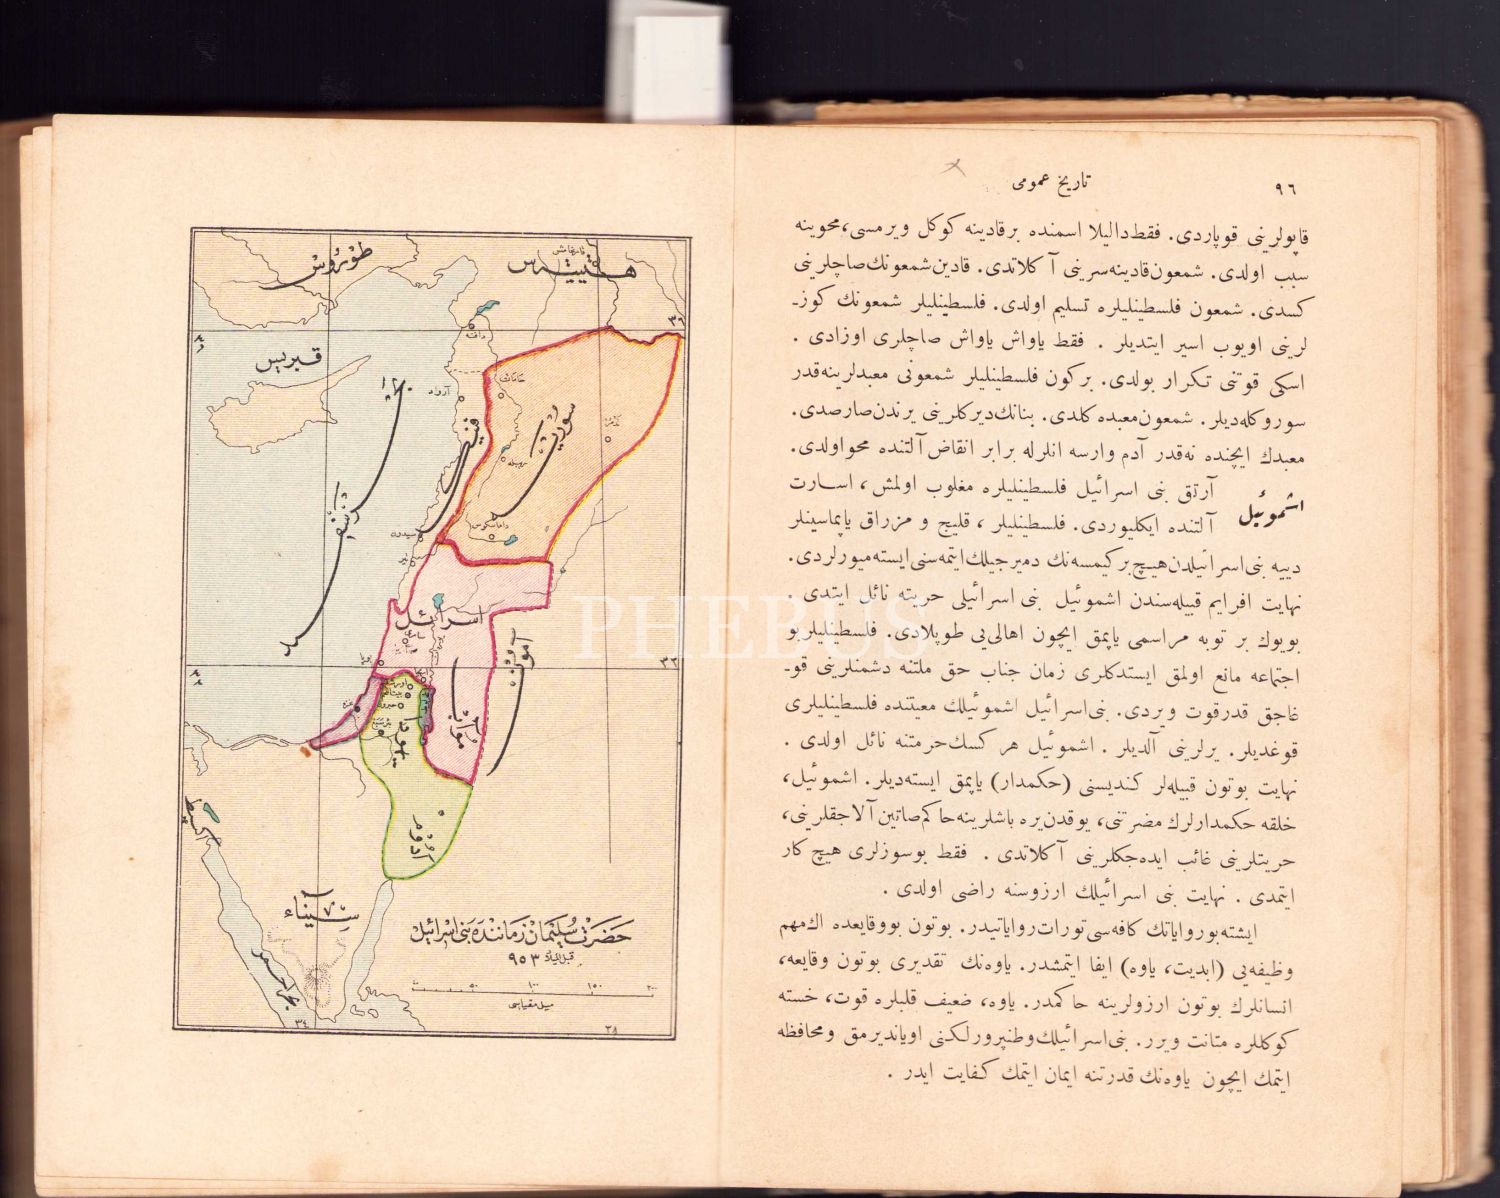 ٩٦
تاريخ عمومى
قاپولرينى قوپاردى. فقط داليلا اسمنده برقادينه كوكل ويرمسى، محوينه
سبب اولدى. شمعون قادينه سرينى آكلاتدى. قادين شمعونك صاچلرينى
كسدى. شمعون فلسطينليلره تسليم اولدى. فلسطينليلر شمعونك كوز-
لرينى اويوب اسير ايتديلر . فقط ياواش ياواش صاچلرى اوزادى .
اسكى قوتنى تكرار بولدى. بركون فلسطينليلر شمعونى معبدلرينه قدر
سوروكله ديلر. شمعون معبده كلدى. بنانك ديركلرينى يرندن صارصدى.
معبدك ايچنده نه قدر آدم وارسه انلرله برابر انقاض آلتنده محو اولدى.
اشموئيل
آرتق بنى اسرائيل فلسطينليلره مغلوب اولمش ، اسارت
آلتنده ايكليوردى. فلسطينليلر ، قليج و مزراق ياپماسينلر
دييه بنى اسرائيلدن هيچ بر كيمسه نك دميرجيلك ايتمه سنى ايسته ميورلردى.
نهايت افرايم قبيله سندن اشموئيل بنى اسرائيلى حريته نائل ايتدى .
بويوك بر توبه مراسمى ياپمق ايچون اهالى يى طوپلادى. فلسطينليلر بو
اجتماعه مانع اولمق ايستدكلرى زمان جناب حق ملتنه دشمنلرينى قو-
غاجق قدر قوت ويردى. بنى اسرائيل اشموئيلك معيتنده فلسطينليلرى
قوغديلر. يرلرينى آلديلر . اشموئيل هر كسك حرمتنه نائل اولدى .
نهايت بوتون قبيله لر كنديسنى (حكمدار) ياپمق ايسته ديلر. اشموئيل،
خلقه حكمدارلرك مضرتنى، يوقدن يره باشلرينه حاكم صاتين آلاجقلرينى،
حريتلرينى غائب ايده جكلرينى آكلاتدى . فقط بو سوزلرى هيچ كار
ايتمدى . نهايت بنى اسرائيلك ارزوسنه راضى اولدى .
ايشته بورواياتك كافه سى تورات رواياتيدر. بوتون بووقايعده اك مهم
وظيفه يى (ابديت، ياوه) ايفا ايتمشدر. ياوه نك تقديرى بوتون وقايعه،
انسانلرك بوتون ارزولرينه حاكمدر. ياوه، ضعيف قلبلره قوت، خسته
كوكللره متانت ويرر. بنى اسرائيلك وطنپرورلكنى اوياندير مق و محافظه
ايتمك ايچون ياوه نك قدرتنه ايمان ايتمك كفايت ايدر .
طوروس
هتيتهرس
٣٦
٣٦
قبريس
دافنه
آرواد
حامات
سوريه
فنيكه
داماسكوس
سيدون
بحر
سفيد
اسرائيل
آمون
٣٢
٣٢
موآب
يهودا
غزه
آدوم
سيناء
بحر احمر
٣٤
٣٨
حضرت سليمان زماننده بنى اسرائيل
قبل الميلاد ٩٥٣
٥٠
١٠٠
١٥٠
٢٠٠
ميل مقياسى
PHEBUS